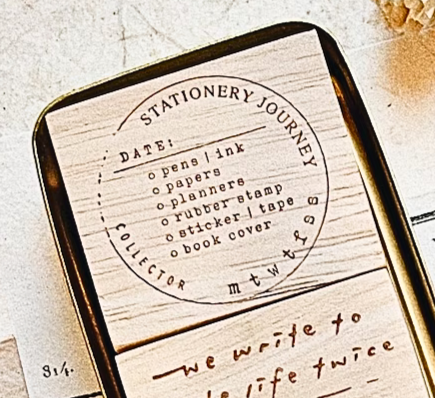 STATIONERY JOURNEY
DATE:
o pens | ink
o papers
o planners
o rubber stamp
o sticker | tape
o book cover
COLLECTOR
m t w t f s s
we write to
life twice
31/.